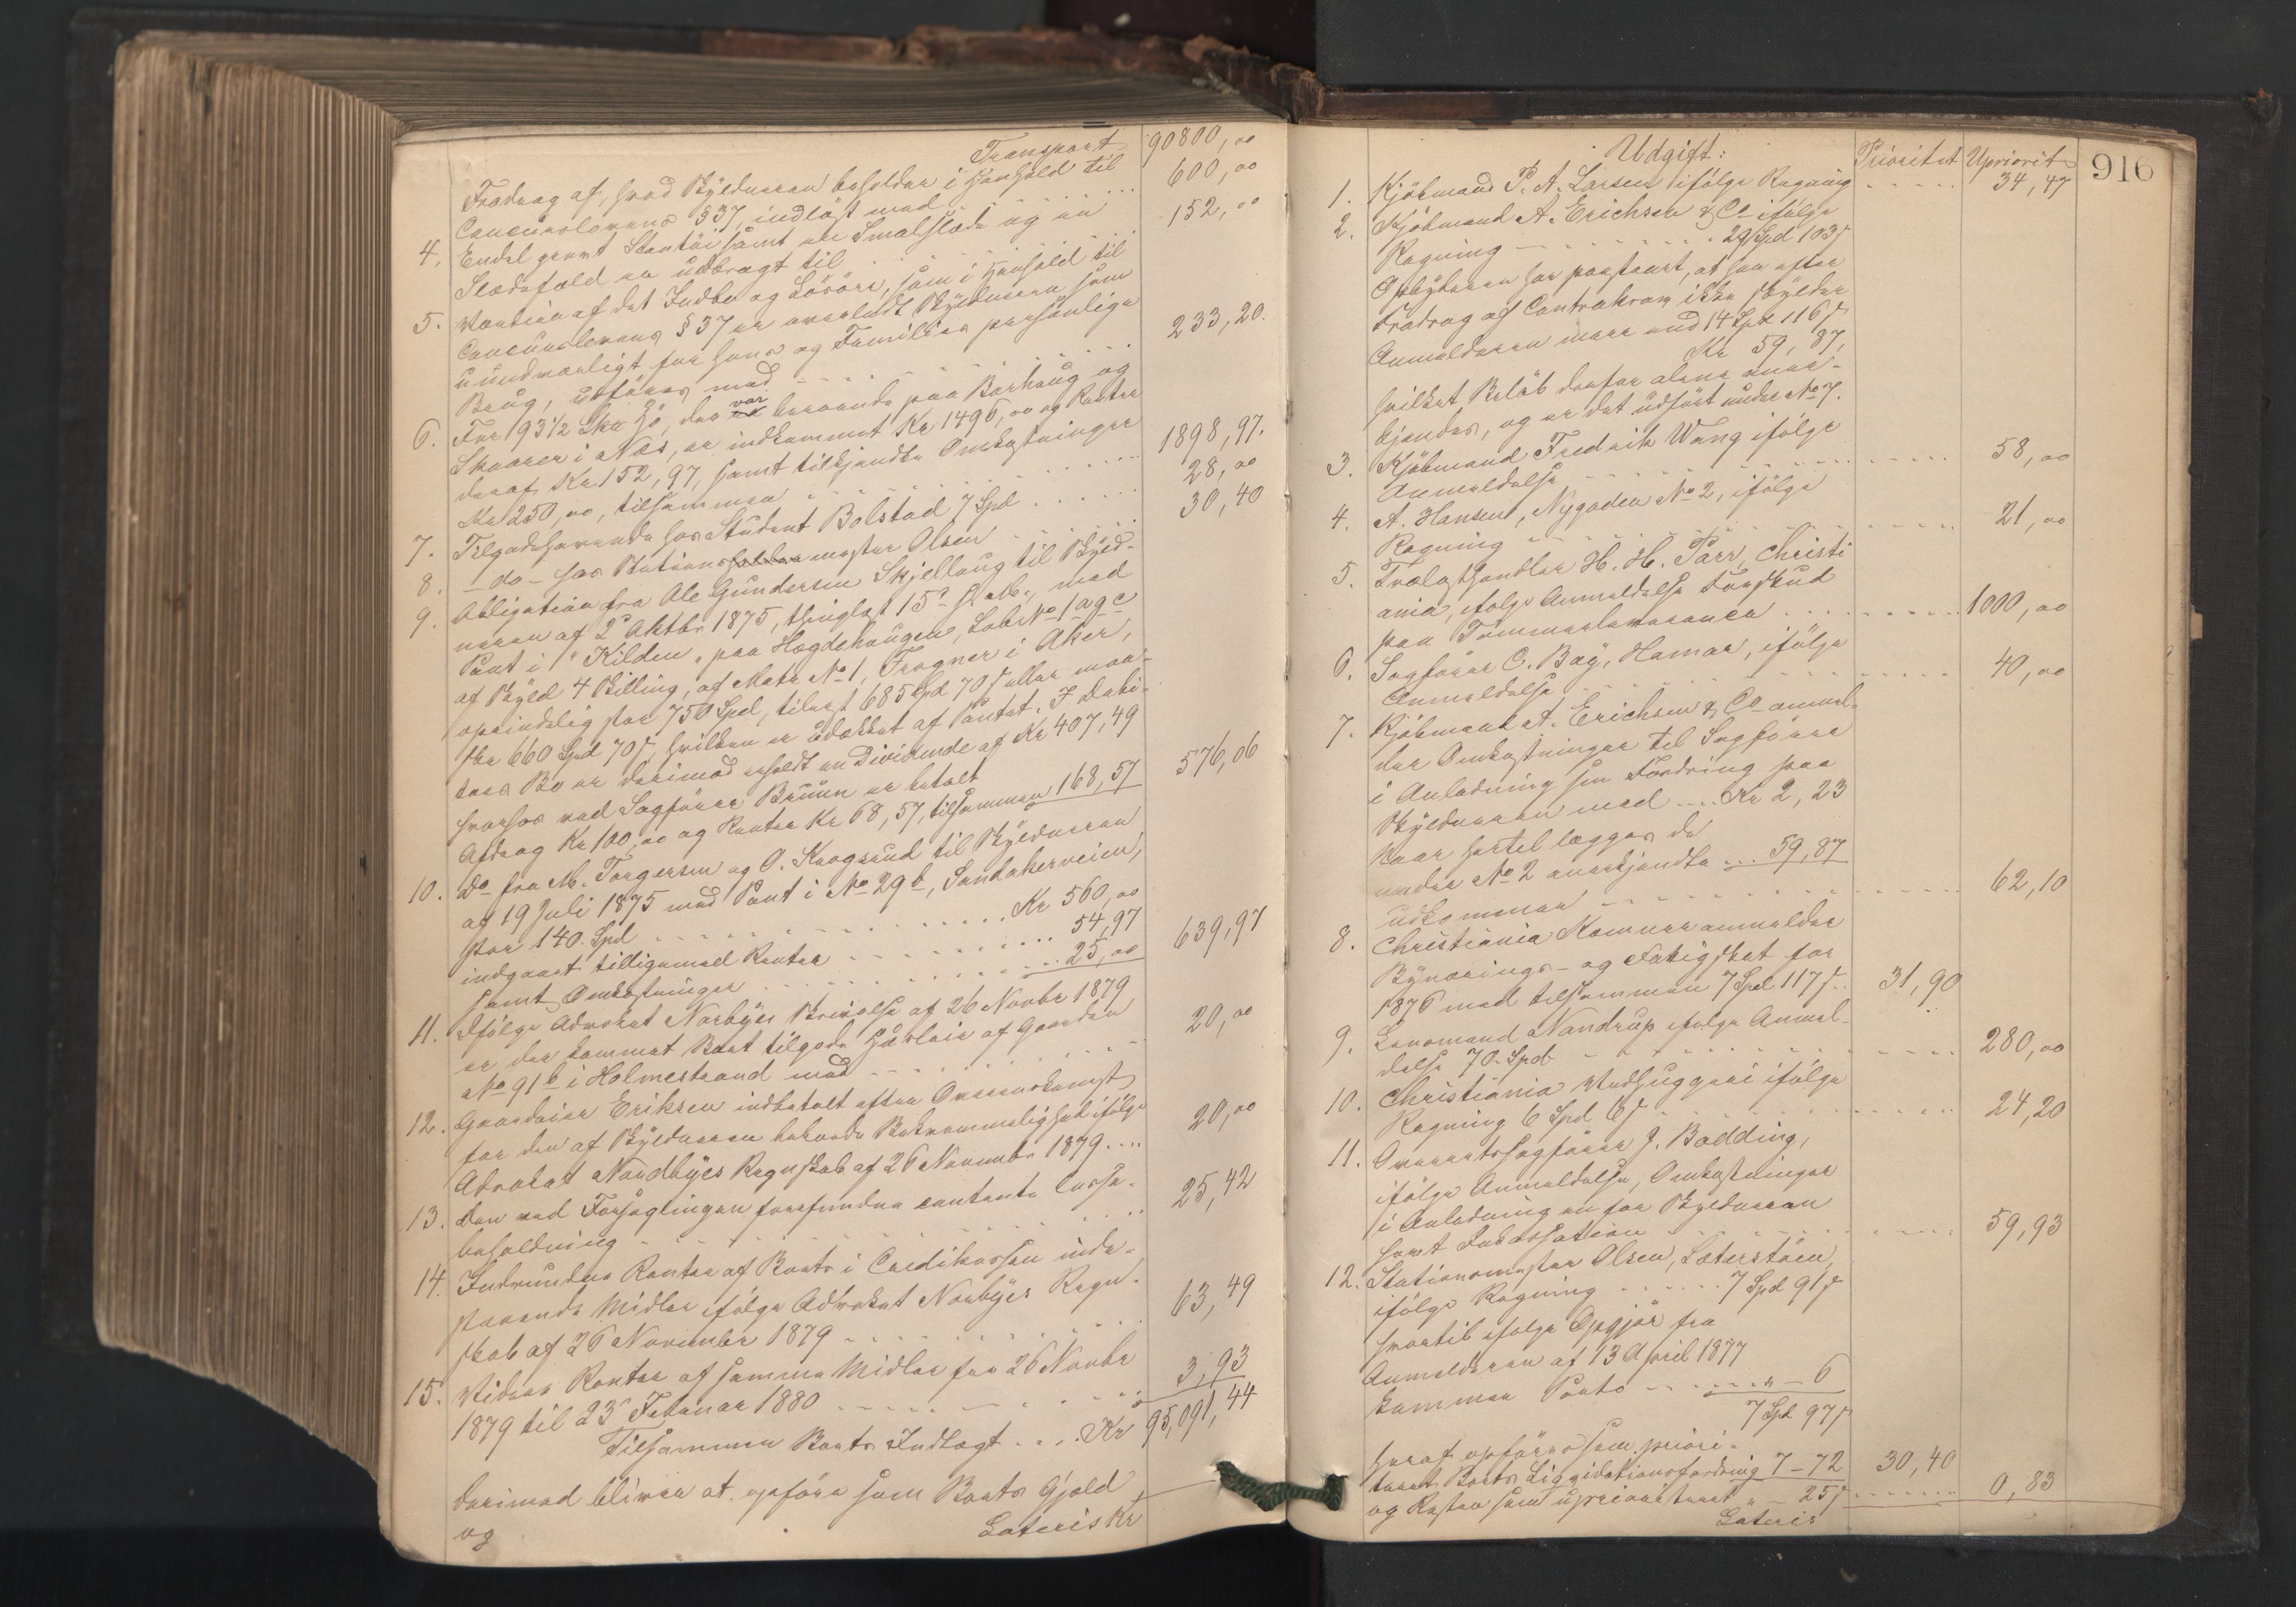 Transport 90800,00
Fradrag af, hvad Skyldneren beholder i Henhold til
Concurslovens § 37, indløst med 600,00
4. Endel grovt Stentøi samt en Smalslæde og en
Slædefæld er udbragt til 152,00
5. Værdien af det Indbo og Løsøre, som i Henhold til
Concurslovens § 37 er overladt Skyldneren som
uundværligt for hans og Familiens personlige
Brug, udføres med 233,20.
6. For 193 1/2 Ska Hø, der var beroende paa Borhaug og
Skaarer i Næs, er indkommet Kr 1496,00 og Renter
deraf Kr 152,97, samt tilkjendte Omkostninger
Kr 250,00, tilsammen 1898,97.
7. Tilgodehavende hos Student Bolstad 7 Spd 28,00
8. - do - hos Stationsmester Olsen 30,40
9. Obligation fra Ole Gundersen Skjellaug til Skyld-
neren af 2 Oktbr 1875, thinglæst 15 s. M., med
Pant i "Kilden" paa Hægdehaugen, Løbe No 1 a q c
af Skyld 4 Skilling, af Matr No 1, Frogner i Aker,
oprindelig stor 750 Spd, tilrest 685 Spd 70 s eller maa-
ske 660 Spd 70 s, hvilken er udækket af Pantet. I Debi-
tors Bo er derimod erholdt en Dividende af Kr 407,49
hvorhos ved Sagfører Bruun er betalt
Afdrag Kr 100,00 og Renter Kr 68,57, tilsammen 168,57 576,06
10. Do fra M. Torgersen og O. Krogsrud til Skyldneren
af 19 Juli 1875 med Pant i No 29b, Sandakerveien,
stor 140 Spd Kr 560,00
indgaaet tilligemed Renter 54,97
samt Omkostninger 25,00 639,97
11. Ifølge Advokat Norbyes Skrivelse af 26 Novbr 1879
er der kommet Boet tilgode Husleie af Gaarden
No 91b i Holmestrand med 20,00
12. Gaardeier Eriksen indbetalt efter Overenskomst
for den af Skyldneren havende Bekvemmelighed ifølge
Advokat Nordbyes Regnskab af 26 November 1879 20,00
13. Den ved Forseglingen forefundne contante Casse-
beholdning 25,42
14. Indvundne Renter af Boets i Creditkassen inde-
staaende Midler ifølge Advokat Norbyes Regn-
skab af 26 November 1879 63,49
15. Videre Renter af samme Midler fra 26 Novbr
1879 til 23 Februar 1880 3,93
Tilsammen Boets Indtægt Kr 95,091,44
Derimod bliver at opføre som Boets Gjæld
og Lateris Kr
916
Udgift: Prioritet Upriorit
1. Kjøbmand P. A. Larsen ifølge Regning 34,47
2. Kjøbmand A. Erichsen & Co ifølge
Regning 29 Spd 103 s
Opbyderen har paastaaet, at han efter
Fradrag af Contrakrav ikke skylder
Anmelderen mere end 14 Spd 116 s
Kr 59,87,
hvilket Beløb derfor alene aner-
kjendes, og er det udført under No 7.
3. Kjøbmand Fredrik Wang ifølge
Anmeldelse 58,00
4. A. Hansen, Nygaden No 2, ifølge
Regning 21,00
5. Trælasthandler H. H. Parr, Christi
ania, ifølge Anmeldelse Forskud
paa Tømmerleverance 1000,00
6. Sagfører C. Bay, Hamar, ifølge
Anmeldelse 40,00
7. Kjøbmand A. Erichsen & Co anmel-
der Omkostninger til Sagfører
i Anledning sin Fordring paa
Skyldneren med Kr 2,23
Naar hertil lægges de
under No 2 anerkjendte 59,87
udkommer 62,10
8. Christiania Kemner anmelder
Bynærings- og Fattigskat for
1876 med tilsammen 7 Spd 117 s 31,90
9. Lensmand Nandrup ifølge Anmel-
delse 70 Spd 280,00
10. Christiania Vedhuggeri ifølge
Regning 6 Spd 6 s 24,20
11. Overretssagfører J. Bødding,
ifølge Anmeldelse, Omkostninger
i Anledning en for Skyldneren
havt Inkassation 59,93
12. Stationsmester Olsen, Sæterstøen,
ifølge Regning 7 Spd 91 s
hvortil ifølge Opgjør fra
Anmelderen af 13 April 1877
kommer Porto " - 6
7 Spd 97 s
Heraf opføres som priori-
teret Boets Liqvidationsfordring 7 - 72 30,40
og Resten som uprioriteret " - 25 s 0,83
Lateris